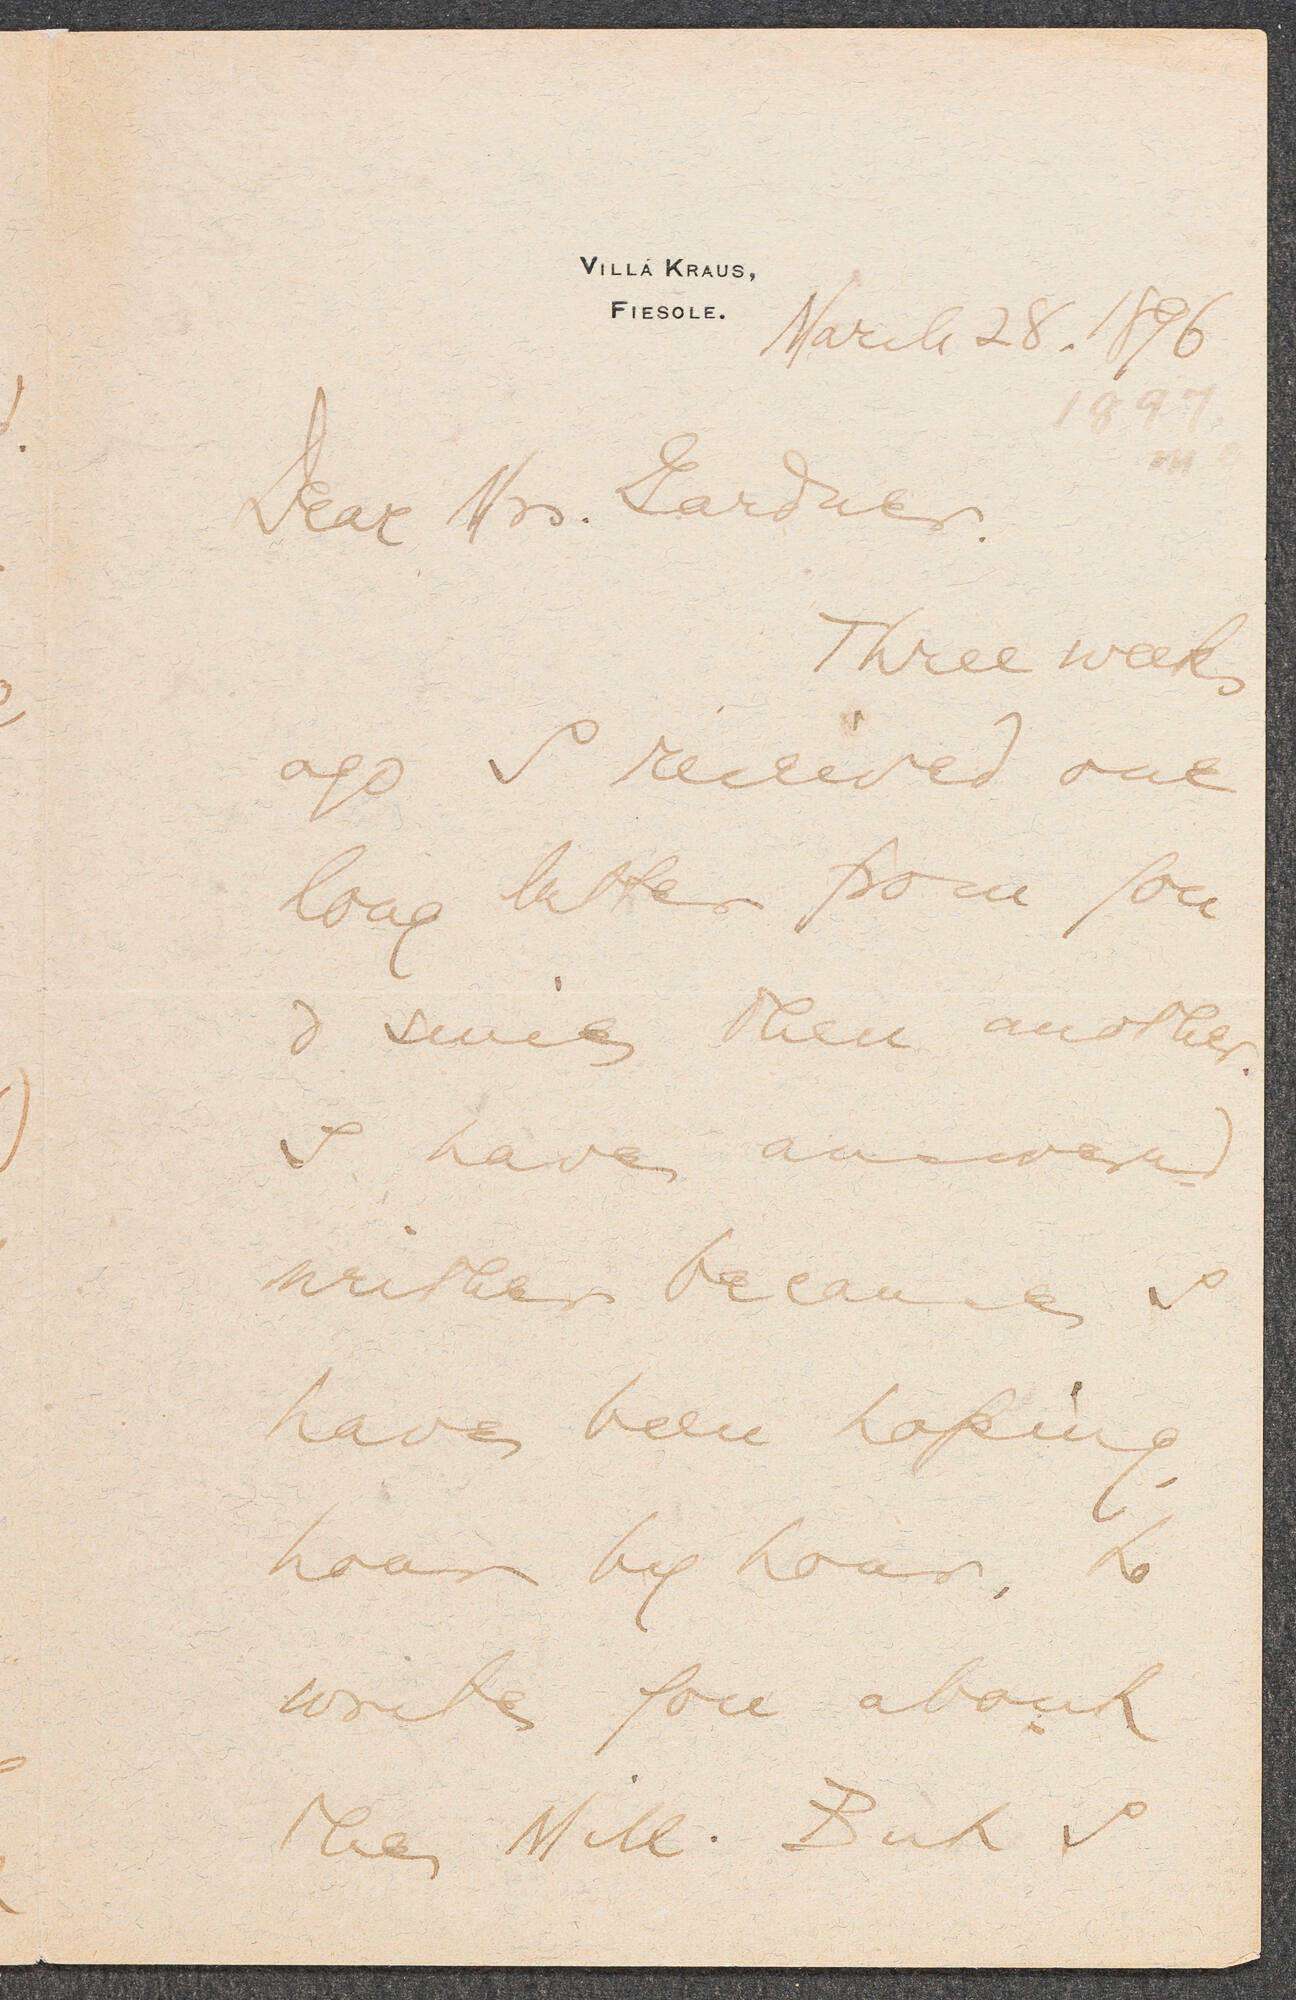 VILLA KRAUS,
FIESOLE.
March 28. 1896
1897.
Dear Mrs. Gardner.
Three weeks
ago I received one
long letter from you
& since then another.
I have answered
neither because I
have been hoping,
hour by hour, to
write you about
the Mill. But I